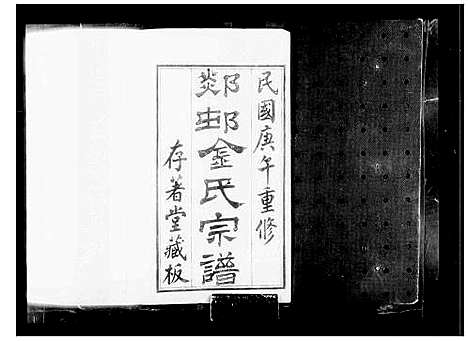 民國庚午重修
郯邨金氏宗譜
存著堂藏板